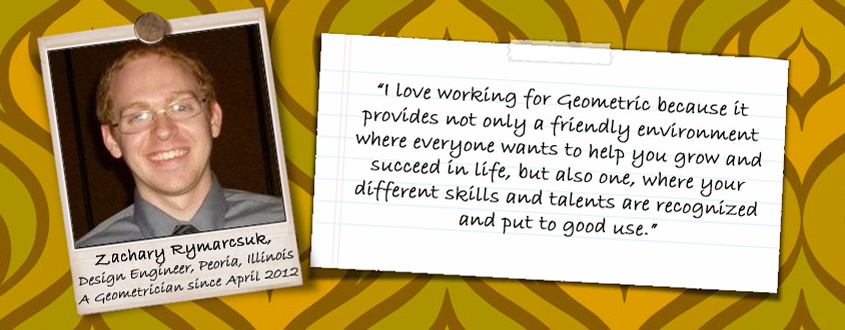 Zachary Rymarcsuk,
Design Engineer, Peoria, Illinois
A Geometrician since April 2012
“I love working for Geometric because it
provides not only a friendly environment
where everyone wants to help you grow and
succeed in life, but also one, where your
different skills and talents are recognized
and put to good use.”